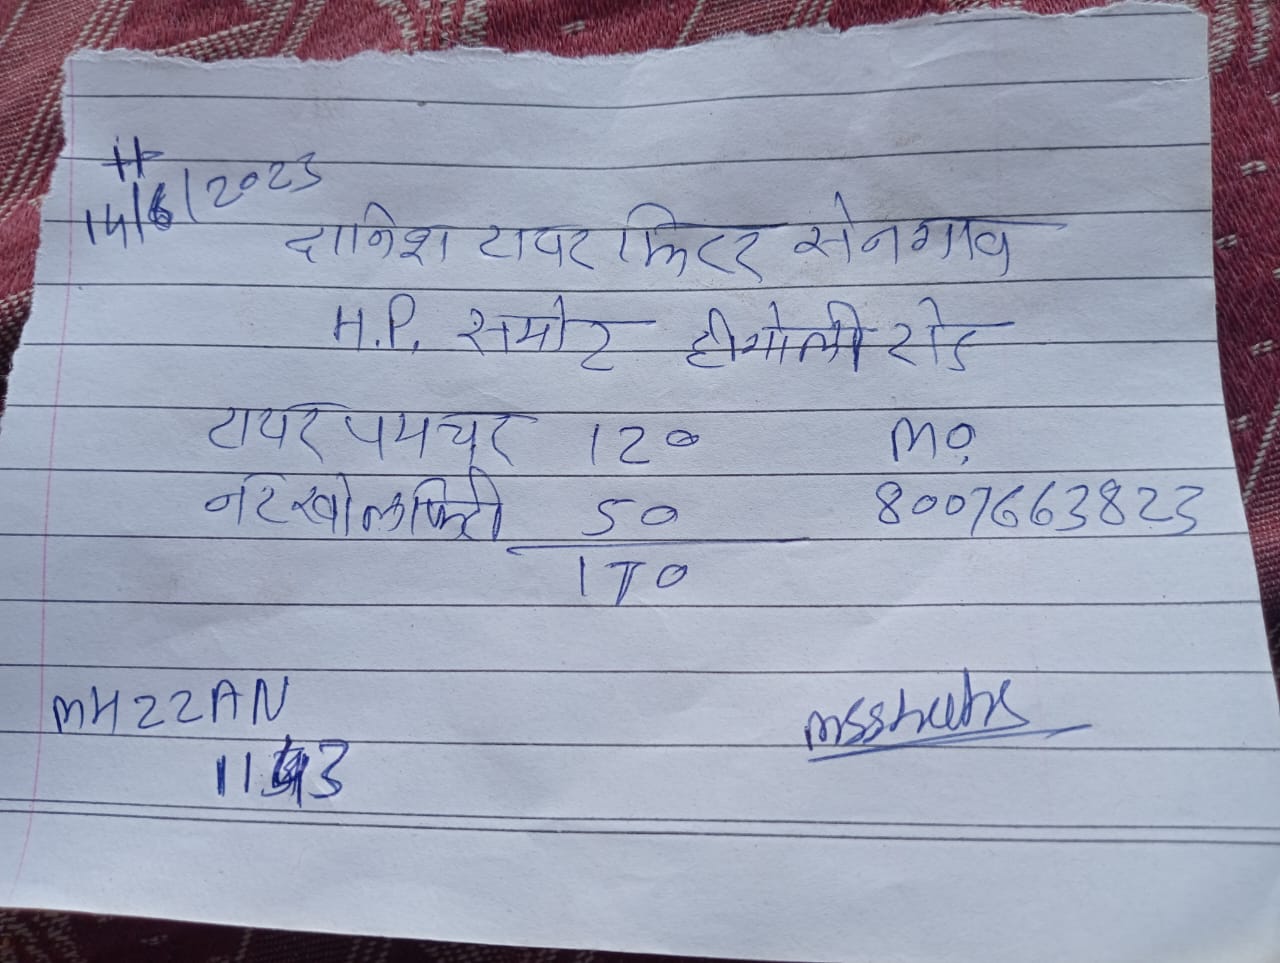 14/6/2023
दानिश टायर फिटर सेनगाव
H.P. समोर हीगोली रोड
टायर पमचर 120 MO.
नट खोल फिटी 50 8007663823
170
MH22AN
1143